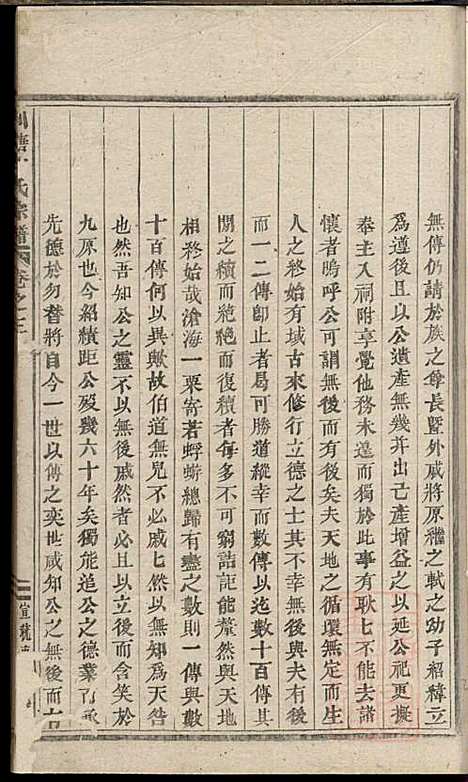 無傳仍請於族之尊長暨外戚將原繼之軾之幼子紹緯立
爲遵後且以公遺產無幾并出己產增益之以延公祀更擬
奉主入祠附享覺他務未遑而獨於此事有耿七不能去諸
懷者嗚呼公可謂無後而有後矣夫天地之循環無定而生
人之終始有域古來修行立德之士其不幸無後與有後
而一二傳卽止者曷可勝道縱幸而數傳以迄數十百傳其
閒之續而絕絕而復續者每多不可窮詰詎能釐然與天地
相終始哉滄海一粟寄若蜉蝣總歸有盡之數則一傳與數
十百傳何以異歟故伯道無兒不必戚七然以無知爲天咎
也然吾知公之靈不以無後戚然者必且以立後而含笑於
九原也今紹續距公歿幾六十年矣獨能追公之德業
先德於勿替將自今一世以傳之奕世咸知公之無後而有
氏宗譜
卷之